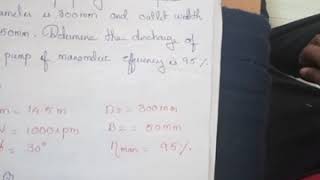 is 300mm and outlet width
50mm. Determine the discharge of
pump if manometric efficiency is 95%
= 14.5m D2 = 300mm
1000rpm B2 = 50mm
30° ηman = 95%